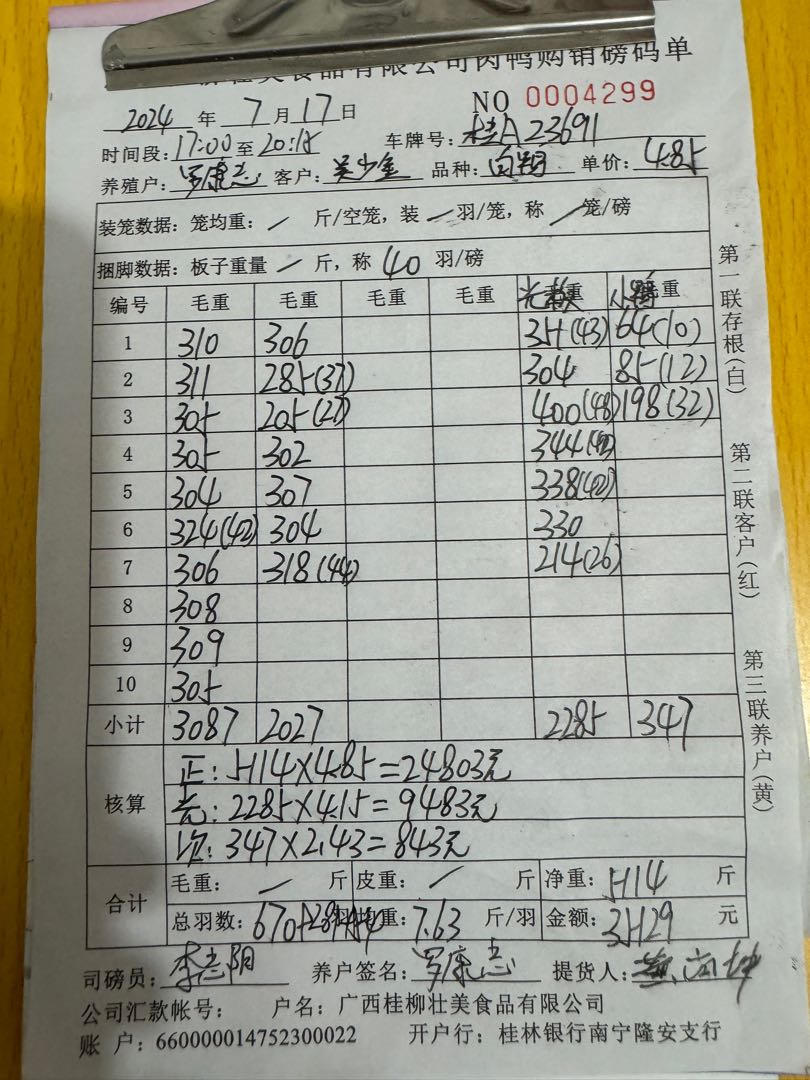 壮美食品有限公司肉鸭购销磅码单
2024 年 7 月 17 日 NO 0004299
时间段: 17:00 至 20:15 车牌号: 桂A23691
养殖户: 罗康志 客户: 吴少金 品种: 白翔 单价: 4.85
装笼数据: 笼均重: / 斤/空笼, 装 / 羽/笼, 称 / 笼/磅
捆脚数据: 板子重量 / 斤, 称 40 羽/磅
编号 毛重 毛重 毛重 毛重 毛重 毛重
1 310 306 355(43) 64(10)
2 311 285(37) 304 85(12)
3 305 205(27) 400(48) 198(32)
4 305 302 344(42)
5 304 307 338(42)
6 324(42) 304 330
7 306 318(44) 214(26)
8 308
9 309
10 305
小计 3087 2027 2285 347
核算
正: 5114×4.85=24803元
光: 2285×4.15=9483元
次: 347×2.43=843元
合计
毛重: / 斤 皮重: / 斤 净重: 5114 斤
总羽数: 670 羽 均重: 7.63 斤/羽 金额: 35129 元
司磅员: 李志阴 养户签名: 罗康志 提货人:
公司汇款帐号: 户名: 广西桂柳壮美食品有限公司
账 户: 660000014752300022 开户行: 桂林银行南宁隆安支行
第一联存根(白)
第二联客户(红)
第三联养户(黄)